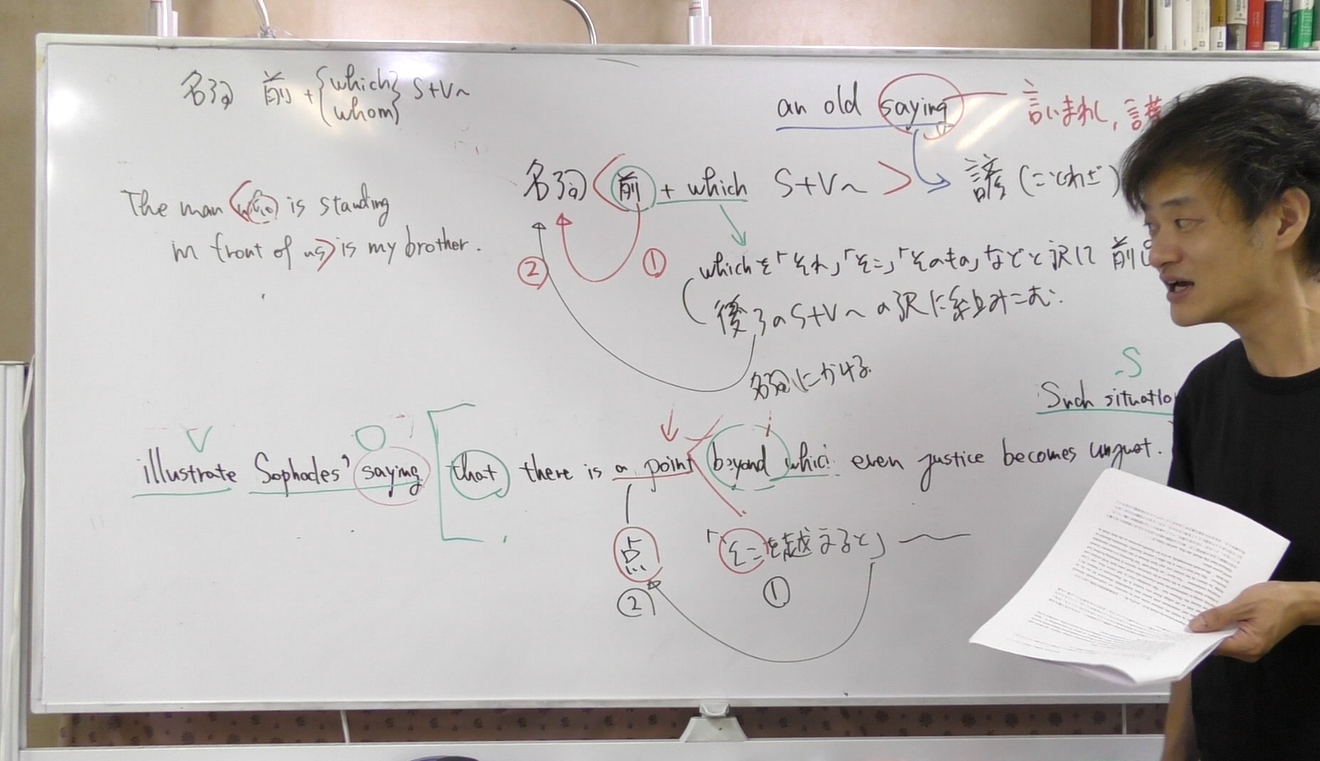 名詞 前+{which whom} S+V~
an old saying
言いまわし, 諺
名詞 <前 + which S+V~>
諺 (ことわざ)
The man who is standing
in front of us is my brother.
② ①
whichを「それ」「そこ」「そのもの」などと訳に 前
後ろのS+V~の訳に組みこむ.
名詞にかける
S
Such situatio
V O
illustrate Sophocles' saying [that there is a point beyond which even justice becomes unjust.
点 「そこを越えると」
② ①